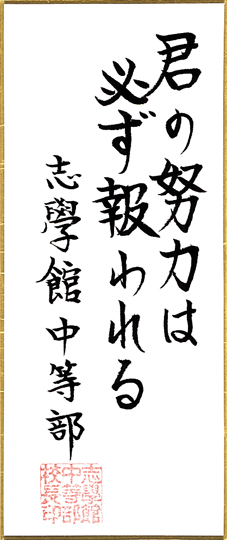 君の努力は
必ず報われる
志學館中等部
志學館
中等部
校長印